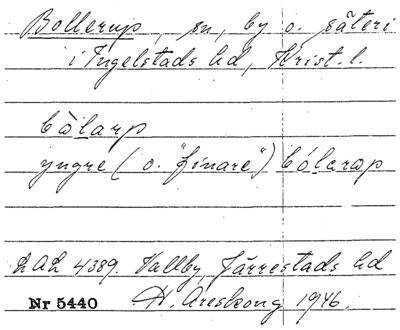 Bollerup, sn, by o. säteri
i Ingelstads hd, Krist. l.
bòlarp
yngre (o. "finare") bólarap
LAL 4389. Vallby, Järrestads hd
Nr 5440 H. Areskoug 1946.